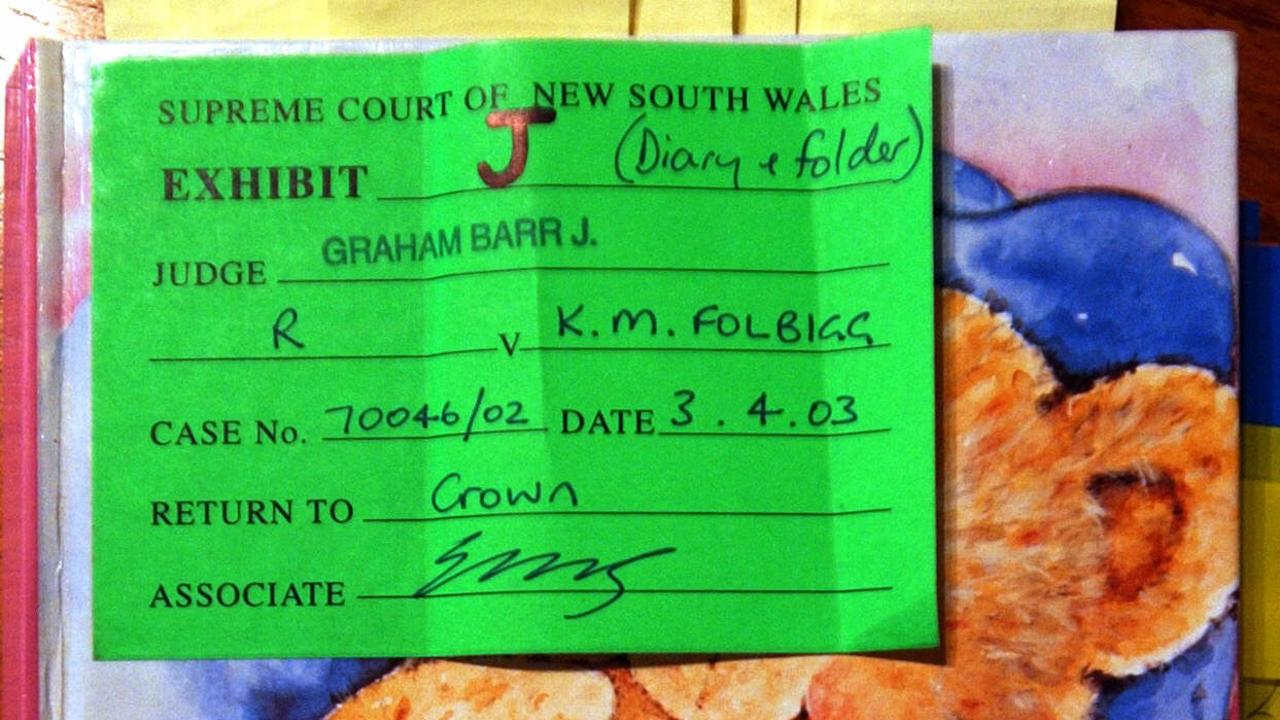 SUPREME COURT OF NEW SOUTH WALES
EXHIBIT J (Diary & folder)
JUDGE GRAHAM BARR J.
R v K.M. FOLBIGG
CASE No. 70046/02 DATE 3.4.03
RETURN TO Crown
ASSOCIATE